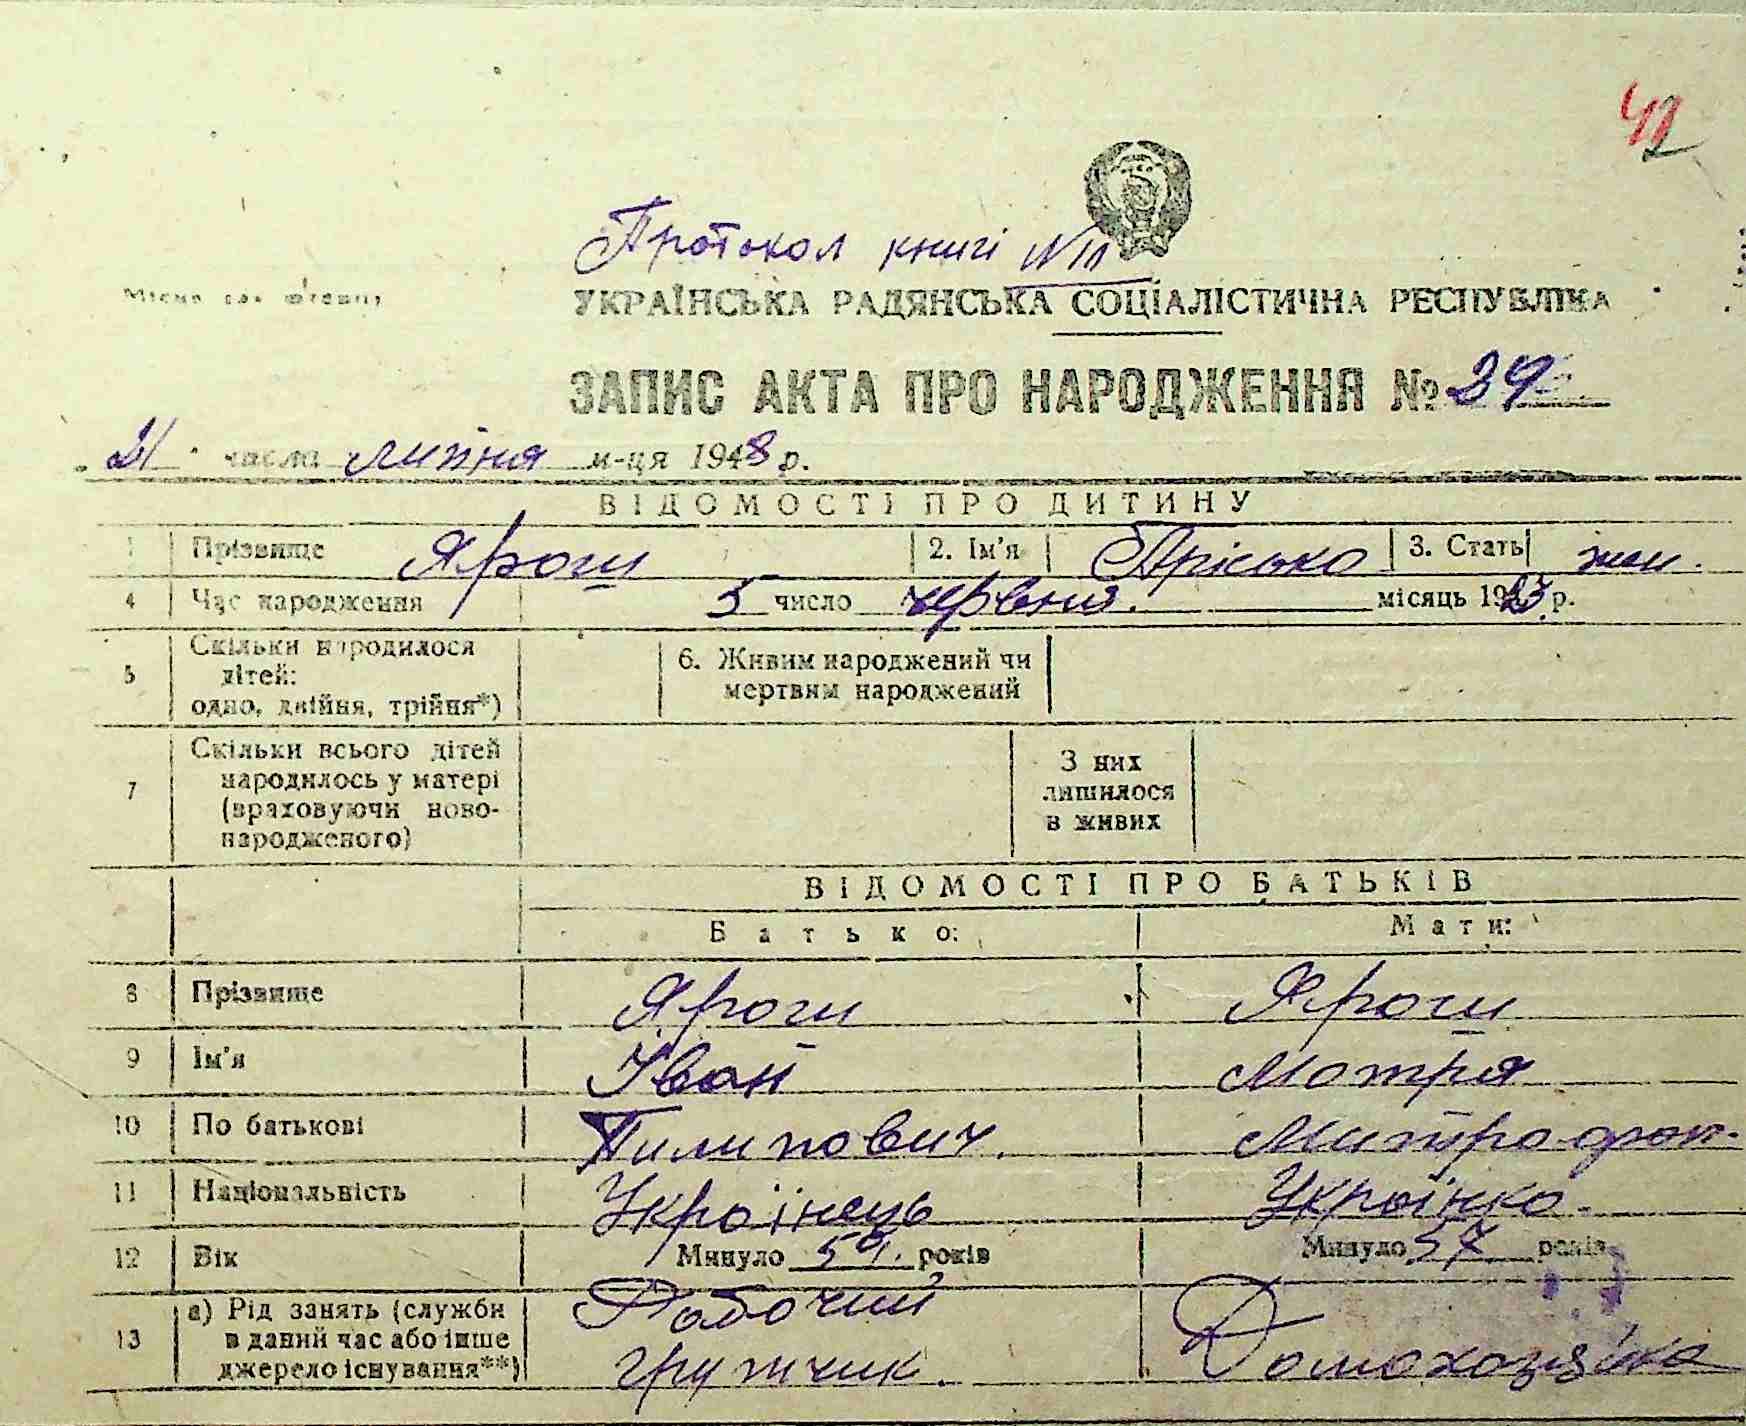 42
Протокол книгі №11
УКРАЇНСЬКА РАДЯНСЬКА СОЦІАЛІСТИЧНА РЕСПУБЛІКА
ЗАПИС АКТА ПРО НАРОДЖЕННЯ № 39
21 числа липня м-ця 1948 р.
ВІДОМОСТІ ПРО ДИТИНУ
1 Прізвище Ярош 2. Ім'я Пріська 3. Стать жен.
4 Час народження 5 число червня. місяць 1923 р.
5 Скільки народилося
дітей:
одно, двійня, трійня*)
6. Живим народжений чи
мертвим народжений
7 Скільки всього дітей
народилось у матері
(враховуючи ново-
народженого)
З них
лишилося
в живих
ВІДОМОСТІ ПРО БАТЬКІВ
Батько: Мати:
8 Прізвище Ярош Ярош
9 Ім'я Іван Мотря
10 По батькові Пилипович. Митрофан.
11 Національність Українець Українка.
12 Вік Минуло 59. років Минуло 57 років
13 а) Рід занять (служби
в даний час або інше
джерело існування**)
Рабочий
грузчик.
Домохазяйка